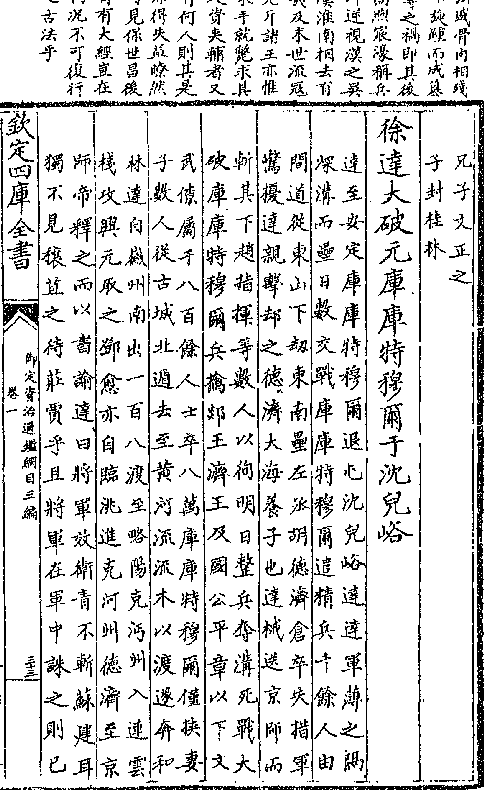 成骨肉相殘
旋踵而成篡
奪之禍即其後
高煦宸濠稱兵
即逆視漢之吳
淮南相去有
幾及末世流寇
充斥諸王亦惟
束手就斃求其
資夾輔者又
有何人則其是
非得失益瞭然
可見保世昌後
自有大經豈在
泥不可復行
之古法乎
兄子文正之
子封桂林
徐達大破元庫庫特穆爾于沈兒峪
達至安定庫庫特穆爾退屯沈兒峪達達軍薄之隔
深溝而壘日數交戰庫庫特穆爾遣精兵千餘人由
間道從東山下刼東南壘左丞胡德濟倉卒失措軍
驚擾達親擊却之德濟大海養子也達械送京師而
斬其下趙指揮等數人以徇明日整兵奪溝死戰大
破庫庫特穆爾兵擒郯王濟王及國公平章以下文
武僚屬千八百餘人士卒八萬庫庫特穆爾僅挾妻
子數人從古城北遁去至黃河流流木以渡遂奔和
林達自徽州南出一百八渡至略陽克沔州入連雲
棧攻興元取之鄧愈亦自臨洮進克河州德濟至京
師帝釋之而以書諭達曰將軍效衛青不斬蘇建耳
獨不見穰苴之待莊賈乎且將軍在軍中誅之則已
欽定四庫全書
御定資治通鑑綱目三編
卷一
三十三